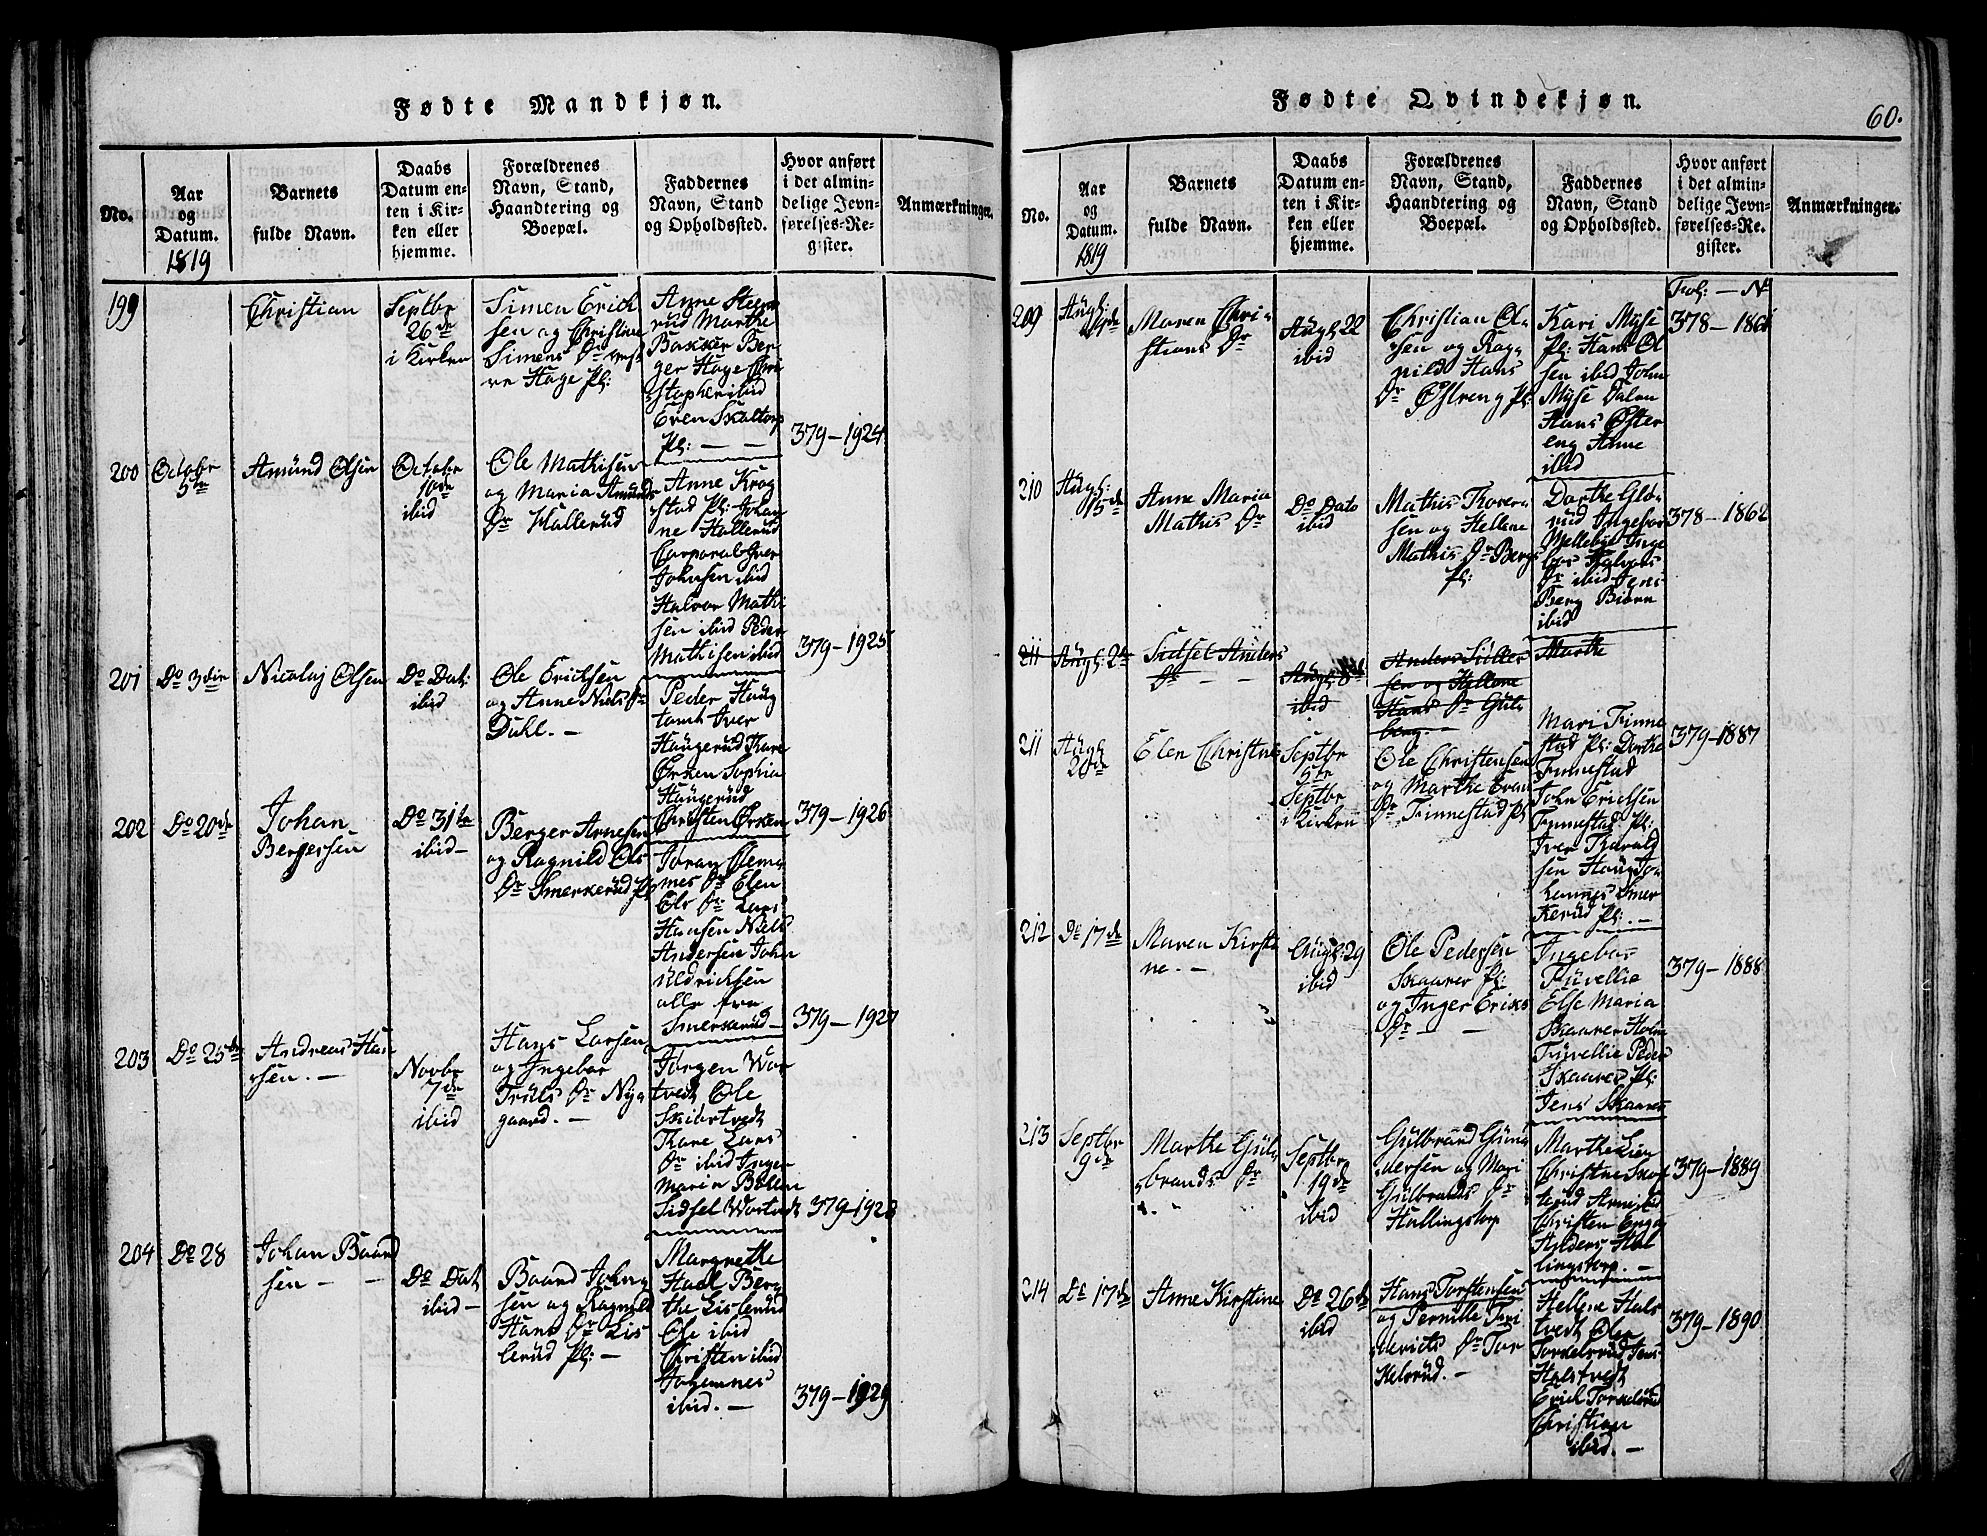 Fødte Mandkjøn.
No.
Aar
og
Datum.
1819
Barnets
fulde Navn.
Daabs
Datum en-
ten i Kir-
ken eller
hjemme.
Forældrenes
Navn, Stand,
Haandtering og
Boepæl.
Faddernes
Navn, Stand
og Opholdssted.
Hvor anført
i det almin-
delige Jevn-
førelses-Re-
gister.
Anmærkninger.
199
Christian
Septbr
26de
i Kirken
Simen Erich
sen og Christine
Simens Dr
re Hage Pl:
Anne Steen
rud Marthe
Bakker Ber
ger Hage Chri
stopher ibid
Even Skaltorp
Pl: — —
379–1924
200
Octobr
5te
Amund Olsen
Octobr
10de
ibid
Ole Mathisen
og Maria Amunds
Dr Hallerud
Anne Krog
stad Pl: Johan
ne Hallerud
Corporal Iver
Johnsen ibid
Halvor Mathi
sen ibid Peder
Mathisen ibid
379–1925
201
Do 3die
Nicolaj Olsen
Do Dat:
ibid
Ole Erichsen
og Anne Niels Dr
Duhl. –
Peder Haug
tomt Iver
Haugerud Kare
Ørken Sophia
Haugerud
Christen Ørken
379–1926
202
Do 20de
Johan
Bergersen
Do 31te
ibid –
Berger Arnesen
og Ragnild Ols
Dr Smerkerud Pl
Joran Clem
mes Dr Elen
Ols Dr Lars
Hansen Niels
Andersen John
Uldrichsen
alle fra
Smerkerud –
379–1927
203
Do 25de
Andreas Han
sen. –
Novbr
7de
ibid
Hans Larsen
og Ingebor
Truls Dr Ny
gaard. –
Jørgen Wor
tvedt Ole
Skibstvedt
Kare Lars
Dr ibid Inger
Maria Bøllen
Sidsel Wortvedt
379–1928
204
Do 28
Johan Baard
sen – –
Do Dat.
ibid –
Baard John
sen og Ragnild
Hans Dr Lis
lerud Pl: –
Margrethe
Hadl Berg
the Lislerud
Ole ibid
Christen ibid
Johannes
ibid. –
379–1929
Fødte Qvindekjøn.
60.
No.
Aar
og
Datum.
1819
Barnets
fulde Navn.
Daabs
Datum en-
ten i Kir-
ken eller
hjemme.
Forældrenes
Navn, Stand,
Haandtering og
Boepæl.
Faddernes
Navn, Stand
og Opholdssted.
Hvor anført
i det almin-
delige Jevn-
førelses-Re-
gister.
Anmærkninger.
Fol: — No
209
Augl:
Maren Chri-
stians Dr
Augl: 22
ibid
Christian Ol-
sen og Rag-
nild Hans
Dr Østreng Pl:
Kari Myse
Pl: Hans Ol
sen ibid John
Myse Dalen
Hans Øster
eng Anne
ibid
378–1861
210
Augl:
15de
Anne Maria
Mathis Dr
Do Dato
ibid
Mathis Thorer
sen og Hellene
Mathis Dr Berg
Pl:
Dorthe Glø
rud Ingebor
Mellebye Inge
bor Halvors
Dr ibid Jens
Berg Biørn
ibid
378–1862
211
Augl: 2den
Sidsel Anders
Dr – –
Augl: 8de
ibid
Anders Sülfes
sen og Hellene
Hans Dr Guls
berg. –
Marthe
211
Augl:
20de
Elen Christne
Septbr
5te
Septbr
i Kirken
Ole Christensen
og Marthe Evan
Dr Finnestad Pl
Mari Finne
stad Pl: Dorthe
Finnestad
John Erichsen
Finnestad Pl:
Iver Thorvald
sen Haug Jo
hannes Smer
kerud Pl: –
379–1887
212
Do 17de
Maren Kirsti
ne. –
Augl: 29
ibid
Ole Pedersen
Skaarer Pl:
og Inger Eriks
Dr – –
Ingebor
Tüvellie
Else Maria
Skaarer Holm
Tüvellie Peder
Skaarer Pl:
Jens Skaarer
379–1888
213
Septbr
9de
Marthe Gul-
brands Dr
Septbr
19de
ibid
Gulbrand Gun
dersen og Mari
Gulbrands Dr
Hallingstorp
Marthe Lien
Christne Skof
terud
Christen Enge
Anders Hal
lingstorp. –
379–1889
214
Do 17de
Anne Kirstine
Do 26de
ibid
Hans Torstensen
og Pernille Fri
derichs Dr Tor
kelsrud. –
Hellene Hals
tvedt Olea
Torkelsrud Jens
Halstvedt
Erich Torkelsrud
Christian
ibid. –
379–1890